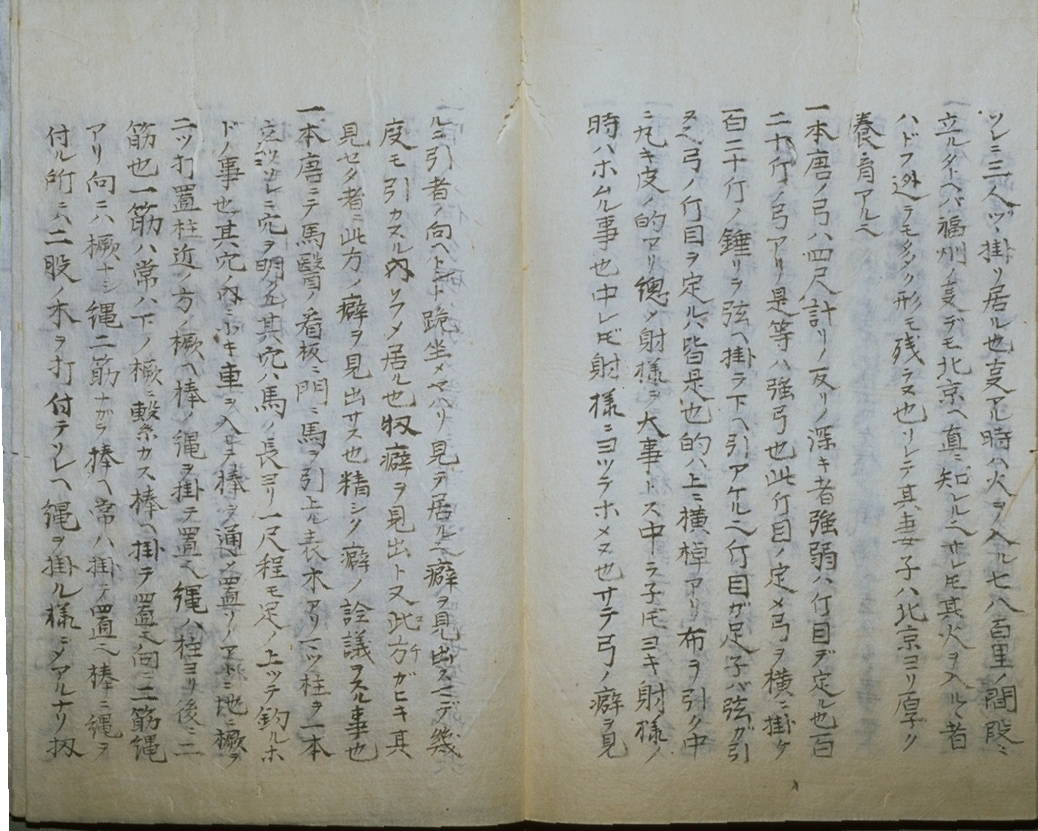 ツレニ三人ツヽ掛リ居ル也変アル時ハ火ヲ入ル七八百里ノ間段ニ
立ル夕ヘバ福州ノ変デモ北京ヘ直ニ知レルヘサレ𪜈其火ヲ入ルヽ者
ハドフ迯ラモ多クリ形モ残ラヌ也ソレテ其妻子ハ北京ヨリ厚ク
養育アルヘ
一本唐ノ弓ハ四尺計リノ反リノ深キ者強弱ハ行目ヂ定ル也百
二十行ノ弓アリ是等ハ強弓也此行目ノ定メ弓ヲ横ニ掛ケ
百二十行ノ錘リヲ弦ヘ掛ラ下ヘ引アケルヘ行目ガ足子バ弦ガ引
ヌヘ弓ノ行目ヲ定ルハ皆是也的ハ上ニ横棹アリ布ヲ引ク中
ニ丸キ皮ノ的アリ總メ射樣ヲ大事トス中ラ子𪜈ヨキ射樣ノ
時ハホムル事也中レ𪜈射樣ニヨツテホメヌ也サテ弓ノ癖ヲ見
ルニ引者ノ向ヘトド跪坐メマハリ見テ居ルヘ癖ヲ見出スマデ幾
度モ引カスル内ソフメ居ル也扨癖ヲ見出ト又此方ガヒキ其
見セタ者ニ此方ノ癖ヲ見出サス也精シク癖ノ詮議ヲスル事也
一本唐ニテ馬醫ノ看板ニ門ニ馬ヲ引上ル表木アリ二ツ柱ヲ二本
立ツソレニ穴ヲ明ク其穴ハ馬ノ長ヨリ一尺程モ足ノ上ツテ釣ルホ
ドノ事也其穴ノ内ニ小キ車ヲ入サ棒ヲ通メ置リノアトニ地ニ橛ヲ
二ツ打置柱近ノ方ノ橛ヘ棒ノ縄ヲ掛テ置ヘ縄ハ柱ヨリ後ニ二
筋也一筋ハ常ハ下ノ橛ニ繋カス棒ヘ掛テ置ヘ向ニ二筋縄
アリ向ニハ橛ナシ縄二筋ナガラ棒ヘ常ハ掛テ置ヘ棒ニ縄ヲ
付ル所ニハ二股ノ木ヲ打付テソレヘ縄ヲ掛ル樣ニメアルナリ扨